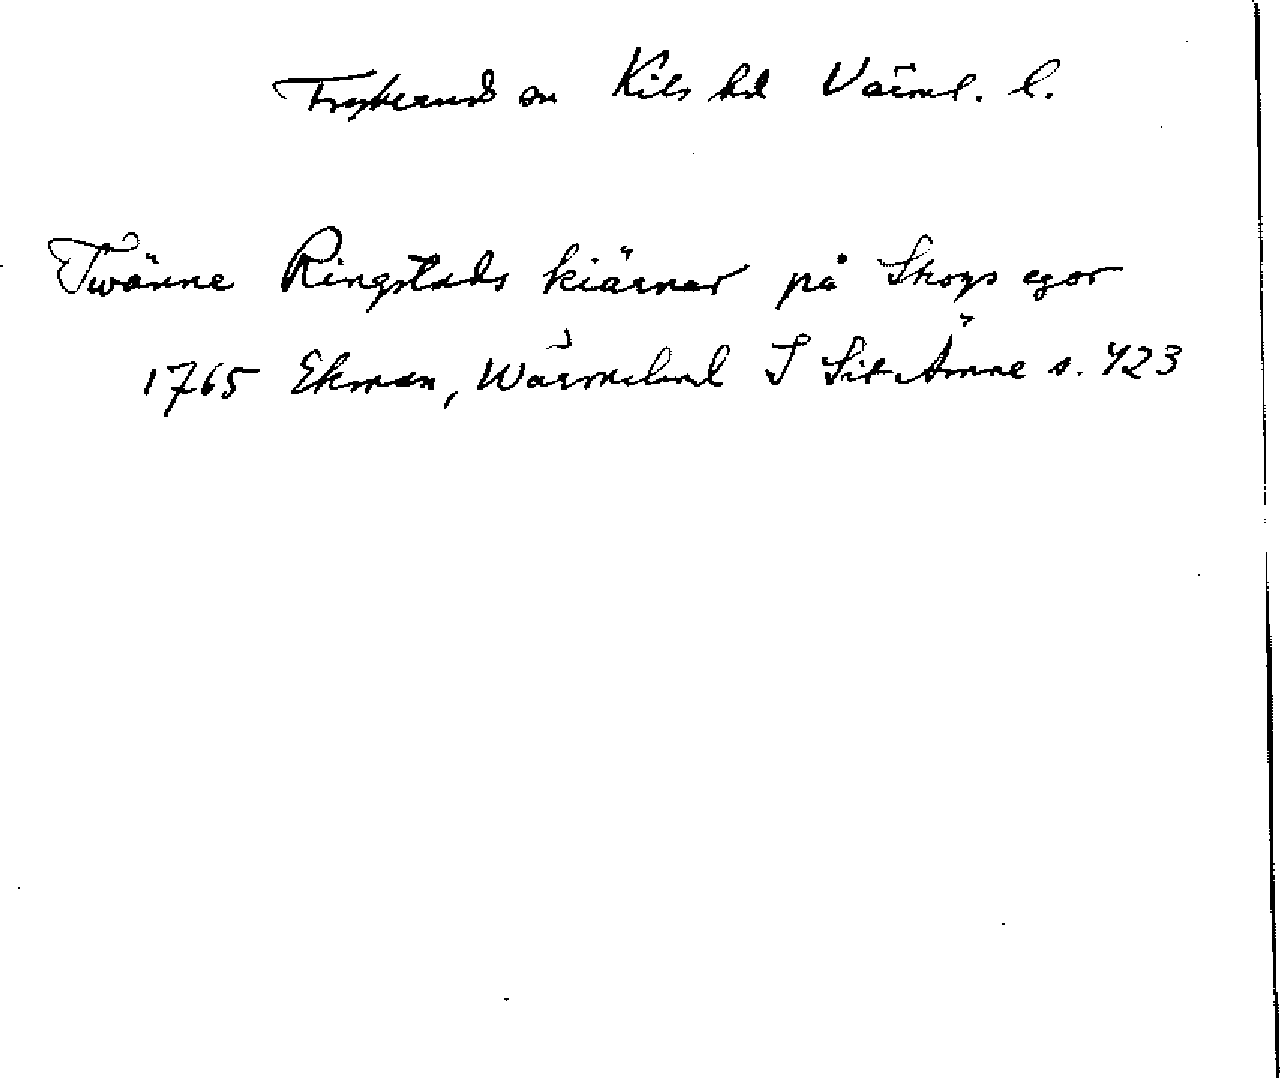 Frykerud sn Kils hd Värml. l.
Twänne Ringstads kiärnar på Skogs egor
1765 Ekman, Wärmeland I Sit Ämne s. 423